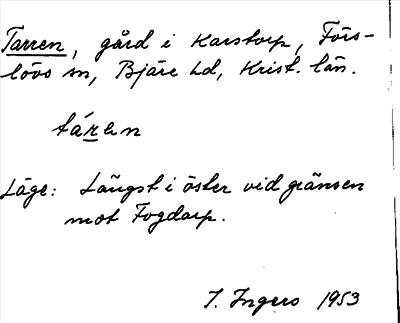 Tarren, gård i Karstorp, Förs-
lövs sn, Bjäre hd, Krist. län.
táren
Läge: Längst i öster vid gränsen
mot Fogdarp.
I. Ingers 1953